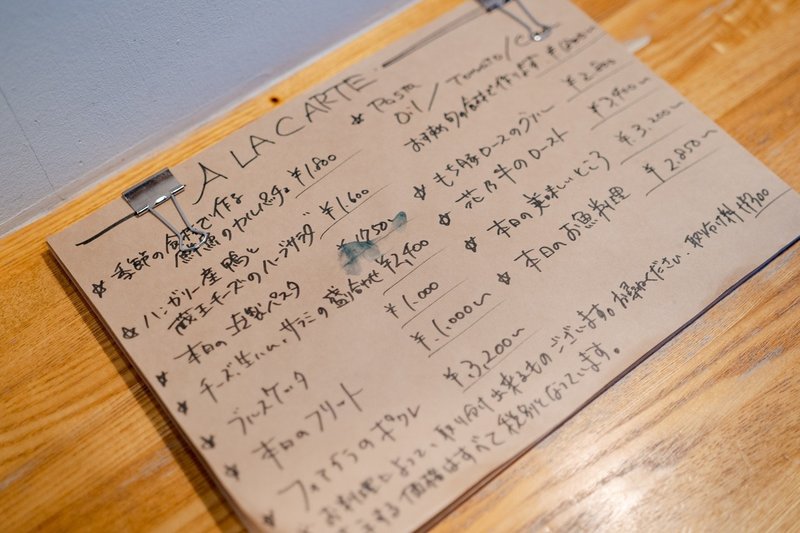 A LA CARTE
☆ 季節の食材で作る
鮮魚のカルパッチョ ¥1,800
☆ ハンガリー産鴨と
蔵王チーズのハーブサラダ ¥1,600
☆ 本日の自家製パスタ ¥1,750〜
☆ チーズ、生ハム、サラミの盛合わせ ¥2,400
☆ ブルスケッタ ¥1,000
☆ 本日のフリット ¥1,000〜
☆ フォアグラのポワレ ¥3,200〜
☆ Pasta
Oil / Tomato /
お好みの食材で作ります
☆ もち豚ロースのグリル ¥2,800
☆ 花乃牛のロースト ¥3,900〜
☆ 本日の美味しいところ ¥3,200〜
☆ 本日のお魚料理 ¥2,850〜
お料理によって、取り分け出来るものございます。お尋ねください。取分け料 ¥300
する価格はすべて税別となっています。